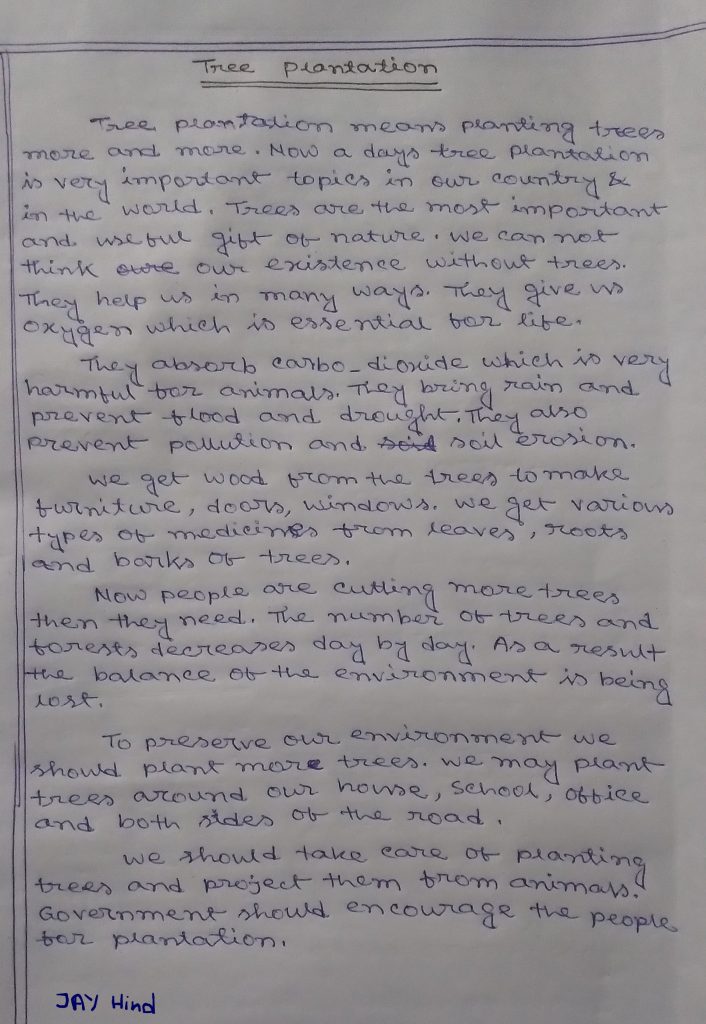 Tree plantation
Tree plantation means planting trees
more and more. Now a days tree plantation
is very important topics in our country &
in the world. Trees are the most important
and useful gift of nature. we can not
think our existence without trees.
They help us in many ways. They give us
oxygen which is essential for life.
They absorb carbo-dioxide which is very
harmful for animals. They bring rain and
prevent flood and drought. They also
prevent pollution and soil erosion.
we get wood from the trees to make
furniture, doors, windows. we get various
types of medicines from leaves, roots
and barks of trees.
Now people are cutting more trees
then they need. The number of trees and
forests decreases day by day. As a result
the balance of the environment is being
lost.
To preserve our environment we
should plant more trees. we may plant
trees around our house, school, office
and both sides of the road.
we should take care of planting
trees and project them from animals.
Government should encourage the people
for plantation.
JAY Hind